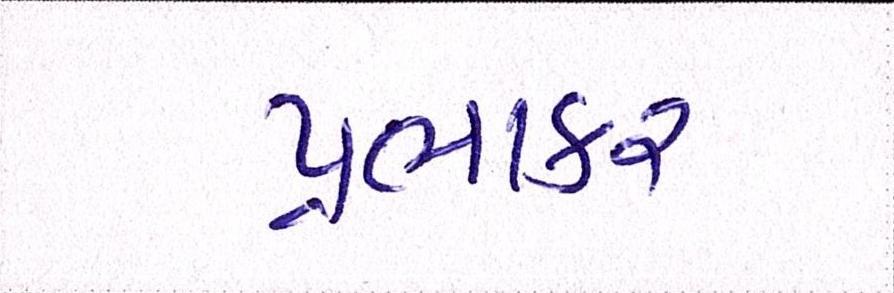 પ્રભાકર